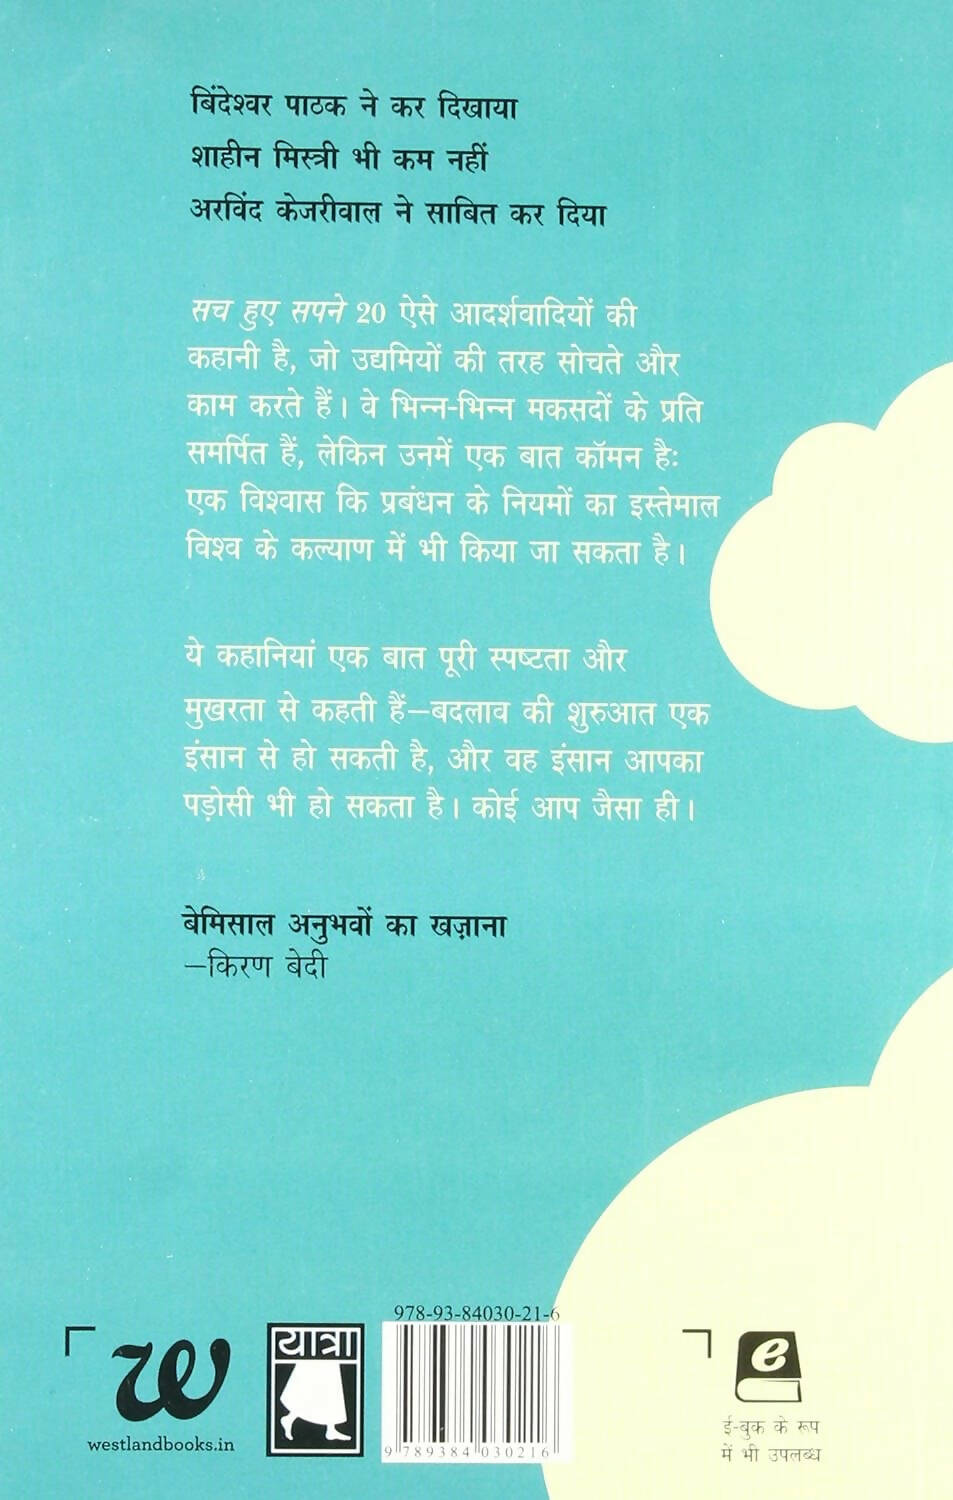 बिंदेश्वर पाठक ने कर दिखाया
शाहीन मिस्त्री भी कम नहीं
अरविंद केजरीवाल ने साबित कर दिया
सच हुए सपने 20 ऐसे आदर्शवादियों की
कहानी है, जो उद्यमियों की तरह सोचते और
काम करते हैं। वे भिन्न-भिन्न मकसदों के प्रति
समर्पित हैं, लेकिन उनमें एक बात कॉमन है:
एक विश्वास कि प्रबंधन के नियमों का इस्तेमाल
विश्व के कल्याण में भी किया जा सकता है।
ये कहानियां एक बात पूरी स्पष्टता और
मुखरता से कहती हैं—बदलाव की शुरुआत एक
इंसान से हो सकती है, और वह इंसान आपका
पड़ोसी भी हो सकता है। कोई आप जैसा ही।
बेमिसाल अनुभवों का खज़ाना
—किरण बेदी
978-93-84030-21-6
w
westlandbooks.in
यात्रा
9 789384 030216
e
ई-बुक के रूप
में भी उपलब्ध